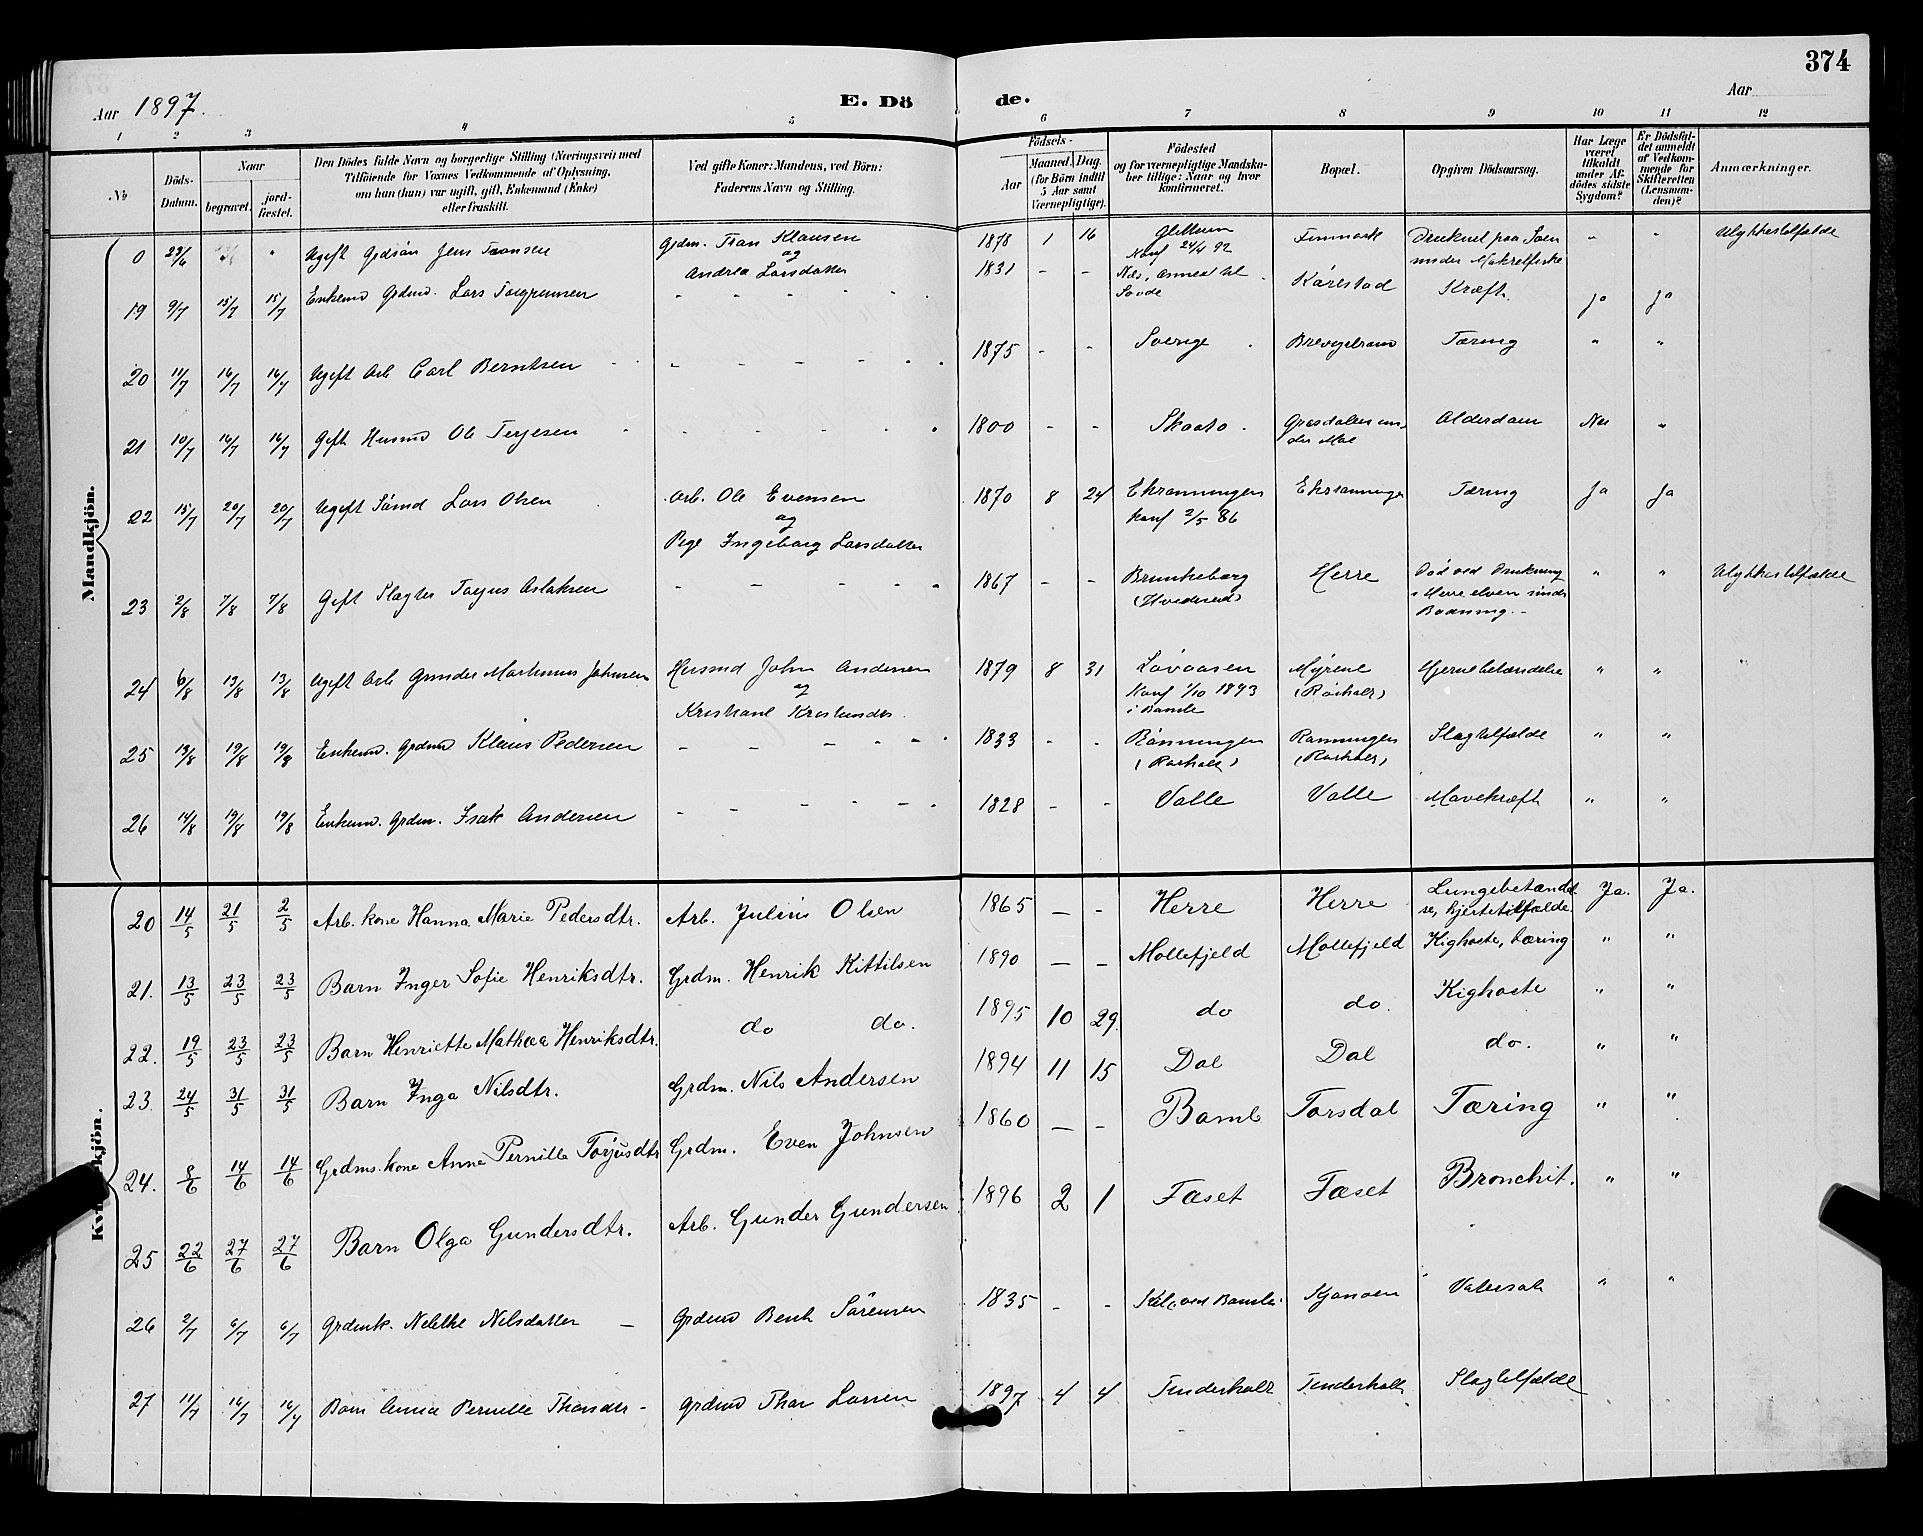 374
Aar 1897.
E. Dö
de.
Aar
1 2 3 4 5 6 7 8 9 10 11 12
№
Döds-Datum.
Naar
begravet.
jord-fæstet.
Den Dödes fulde Navn og borgerlige Stilling (Næringsvei) med
Tilföiende for Voxnes Vedkommende af Oplysning,
om han (hun) var ugift, gift, Enkemand (Enke)
eller fraskilt.
Ved gifte Koner: Mandens, ved Börn:
Faderens Navn og Stilling.
Födsels-
Aar
Maaned. Dag.
(for Börn indtil
5 Aar samt
Værnepligtige).
Födested
og for værnepligtige Mandska-
ber tillige: Naar og hvor
konfirmeret.
Bopæl.
Opgiven Dödsaarsag.
Har Læge
været
tilkaldt
under Af-
dödes sidste
Sygdom?
Er Dödsfal-
det anmeldt
af Vedkom-
mende for
Skifteretten
(Lensman-
den)?
Anmærkninger.
Mandkjön.
0 23/6 " Ugift Gdsön Jens Fransen Gdm. Fran Klausen
og
Andrea Larsdatter 1878 1 16
Konf 24/4 92 Finmark Druknet paa Söen
under Makrelfiske " " Ulykkestilfælde
19 9/7 15/7 15/7 Enkem Grdm. Lars Torgrimsen - - 1831 - - Kærestad Kræft. ja ja
20 11/7 16/7 16/7 Ugift Arb Carl Berntsen - - 1875 - - Sverige Tæring " "
21 10/7 16/7 16/7 Gift Husmd Ole Terjesen - - 1800 - - Skaato Alderdom Nei "
22 15/7 20/7 20/7 Ugift Sömd Lars Olsen Arb. Ole Evensen
og
Pige Ingeborg Larsdatter 1870 8 24 Ekranningen
Konf 2/5 86 Ekranningen Tæring Ja Ja
23 2/8 7/8 7/8 Gift Slagter Torjus Aslaksen - - 1867 - - Brunkeberg
(Hvideseid) Herre Död ved Drukning
i Herre elven under
Badning. " " Ulykkestilfælde
24 6/8 13/8 13/8 Ugift Arb Gunder Martinius Johnsen Husmd John Andersen
og
1879 8 31 Lövaasen
Konf 1/10 1893
i Bamle Myrene
Hjernebetændelse " "
25 13/8 19/8 19/8 Enkem. Grdmd Klaus Pedersen - - 1833 - - Rönningen
Rönningen
Slagtilfælde " "
26 14/8 19/8 19/8 Enkem. Grdm. Isak Andersen - - 1828 - - Valle Valle Mavekræft " "
20 14/5 21/5 2/5 Arb. kone Hanna Marie Pedersdtr. Arb. Julius Olsen 1865 - - Herre Herre Lungebetændel-
se, hjertetilfælde. Ja. Ja.
21. 13/5 23/5 23/5 Barn Inger Sofie Henriksdtr. Grdm. Henrik Kittilsen 1890 - - Mollefjeld Mollefjeld Kighoste, tæring " "
22. 19/5 23/5 23/5 Barn Henriette Mathea Henriksdtr. do do. 1895 10 29 do do. Kighoste " "
23 24/5 31/5 31/5 Barn Inga Nilsdtr. Grdm. Nils Andersen 1894 11 15 Dal Dal do. " "
24. 8/6 14/6 14/6 Grdms. kone Anne Pernille Torjusdtr Grdm. Even Johnsen 1860 - - Bamle Torsdal Tæring " "
25 22/6 27/6 27/6 Barn Olga Gundersdtr. Arb. Gunder Gundersen 1896 2 1 Fæset Fæset Bronchit. " "
26 2/7 6/7 6/7 Grdmk. Nelethe Nilsdatter Grdmd Bent Sörensen 1835 - - Vatersot " "
27 11/7 16/7 16/7 Barn Pernille Thorsdtr Grdmd Thor Larsen 1897 4 4 Tinderholt Tinderholt Slagtilfælde